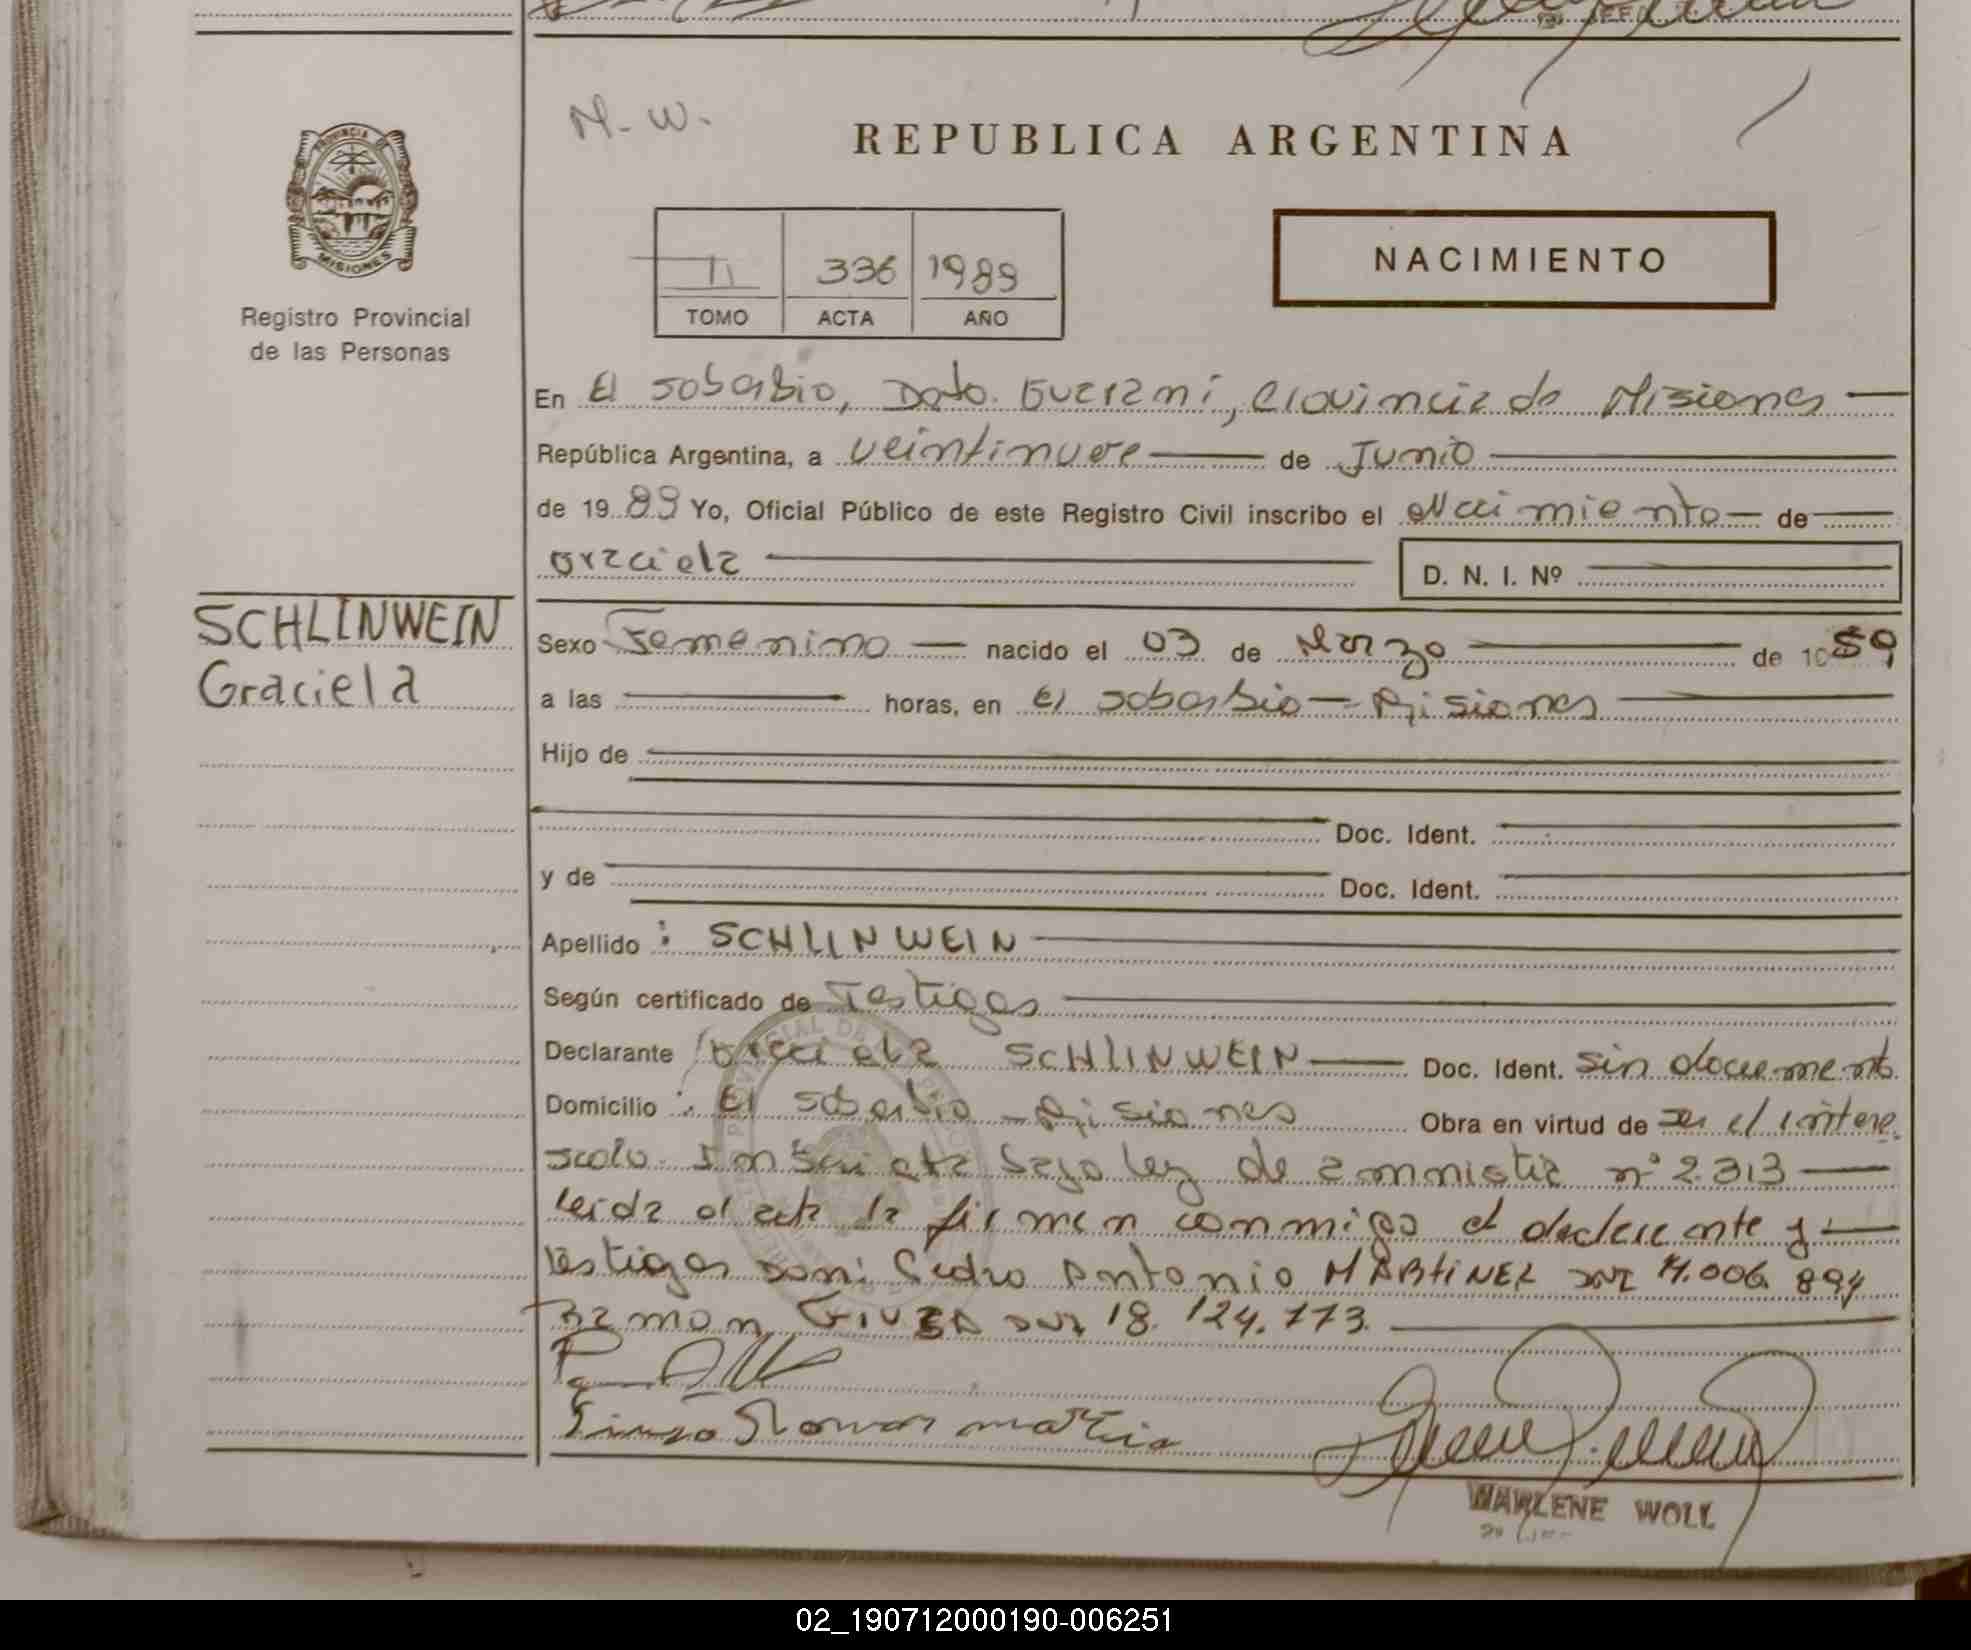 M.W.
REPUBLICA ARGENTINA
PROVINCIA DE
MISIONES
Registro Provincial
de las Personas
II 336 1989
TOMO ACTA AÑO
NACIMIENTO
En El Soberbio, Dpto. Guarani, Provincia de Misiones
República Argentina, a veintinueve de Junio
de 1989 Yo, Oficial Público de este Registro Civil inscribo el Nacimiento de
Graciela D. N. I. Nº
SCHLINWEIN
Graciela
Sexo Femenino nacido el 03 de Marzo de 1959
a las horas, en El Soberbio - Misiones
Hijo de
Doc. Ident.
y de Doc. Ident.
Apellido : SCHLINWEIN
Según certificado de Testigos
Declarante Graciela SCHLINWEIN Doc. Ident. sin documento
Domicilio : El Soberbio - Misiones Obra en virtud de ser el intere
sado. Inscripta bajo ley de amnistia nº 2.313
leida el acta la firman conmigo el declarante y
testigos son: Pedro Antonio MARTINEZ DNI 14.006.894
Ramon GIUSA DNI 18.124.773.
MARLENE WOLL
02_190712000190-006251